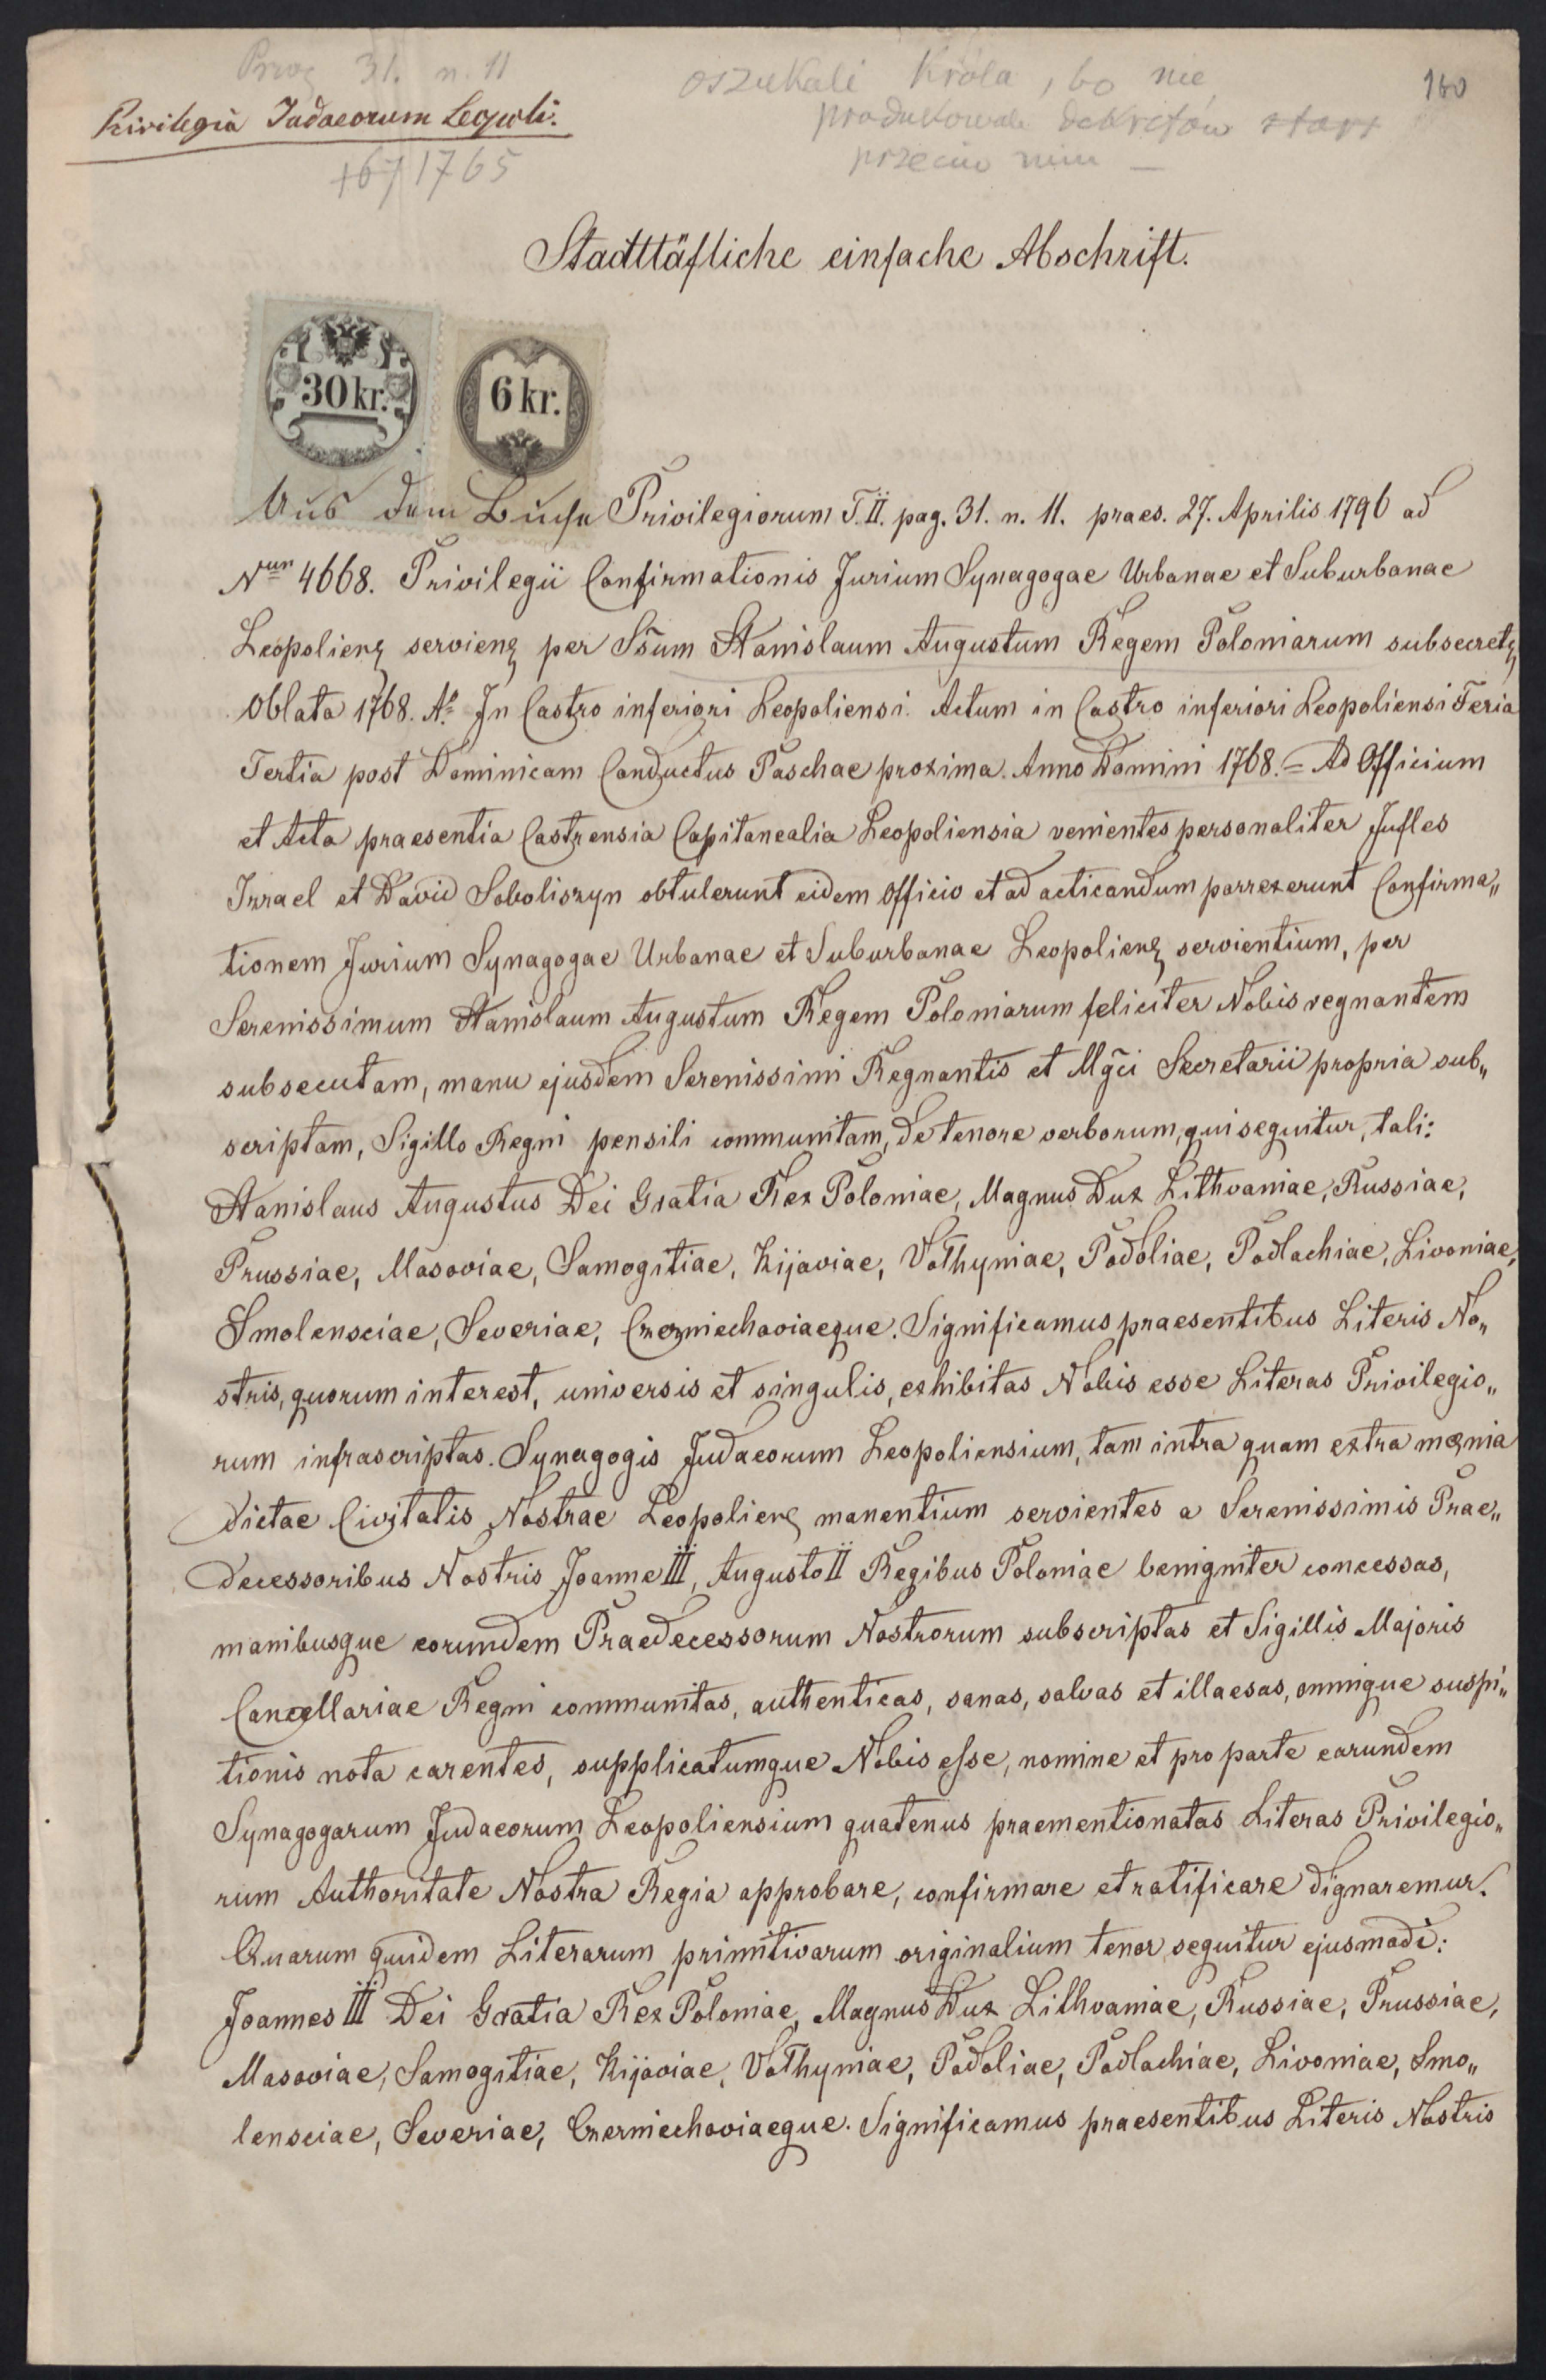 Priv. 31. n. 11
Privilegia Judaeorum Leopoli.
1765
oszukali Króla, bo nie
produkowali dekretów
przeciw nim —
180
Stadttäfliche einfache Abschrift.
30 kr.
6 kr.
Aus dem Buche Privilegiorum T. II. pag. 31. n. 11. praes. 27. Aprilis 1796 ad
Nrum 4668. Privilegii Confirmationis Jurium Synagogae Urbanae et Suburbanae
Leopolienȝ servienȝ per Sſum Stanislaum Augustum Regem Poloniarum subsecretȝ
Oblata 1768. Ao. In Castro inferiori Leopoliensi. Actum in Castro inferiori Leopoliensi Feria
Tertia post Dominicam Conductus Paschae proxima. Anno Domini 1768. = Ad Officium
et Acta praesentia Castrensia Capitanealia Leopoliensia venientes personaliter Jufles
Izrael et David Soboliszyn obtulerunt eidem Officio et ad acticandum porrexerunt Confirma„
tionem Jurium Synagogae Urbanae et Suburbanae Leopolienȝ servientium, per
Serenissimum Stanislaum Augustum Regem Poloniarum feliciter Nobis regnantem
subsecutam, manu ejusdem Serenissimi Regnantis et Mg̃ci Secretarii propria sub„
scriptam, Sigillo Regni pensili communitam, de tenore verborum, qui sequitur, tali:
Stanislaus Augustus Dei Gratia Rex Poloniae, Magnus Dux Lithvaniae, Russiae,
Prussiae, Masoviae, Samogitiae, Kijaviae, Volhyniae, Podoliae, Podlachiae, Livoniae,
Smolensciae, Severiae, Czerniechoviaeque. Significamus praesentibus Literis No„
stris, quorum interest, universis et singulis, exhibitas Nobis esse Literas Privilegio„
rum infrascriptas. Synagogis Judaeorum Leopoliensium, tam intra quam extra mœnia
dictae Civitatis Nostrae Leopolienȝ manentium servientes a Serenissimis Prae„
decessoribus Nostris Joanne III, Augusto II Regibus Poloniae benigniter concessas,
manibusque eorumdem Praedecessorum Nostrorum subscriptas et Sigillis Majoris
Cancellariae Regni communitas, authenticas, sanas, salvas et illaesas, omnique suspi„
tionis nota carentes, supplicatumque Nobis esse, nomine et pro parte earundem
Synagogarum Judaeorum Leopoliensium quatenus praementionatas Literas Privilegio„
rum Authoritate Nostra Regia approbare, confirmare et ratificare dignaremur.
Quarum quidem Literarum primitivarum originalium tenor sequitur ejusmodi:
Joannes III Dei Gratia Rex Poloniae, Magnus Dux Lithvaniae, Russiae, Prussiae,
Masoviae, Samogitiae, Kijoviae, Volhyniae, Podoliae, Podlachiae, Livoniae, Smo„
lensciae, Severiae, Czerniechoviaeque. Significamus praesentibus Literis Nostris